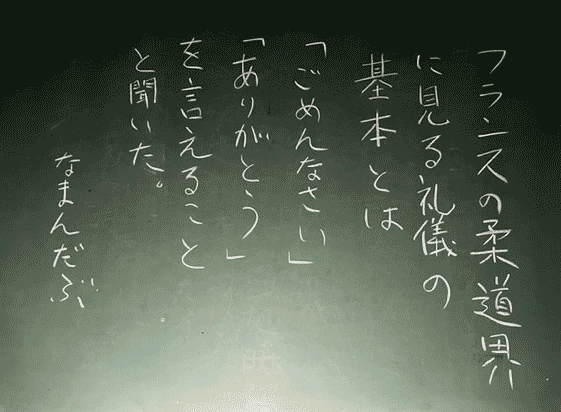 フランスの柔道界
に見る礼儀の
基本とは
「ごめんなさい」
「ありがとう」
を言えること
と聞いた。
なまんだぶ